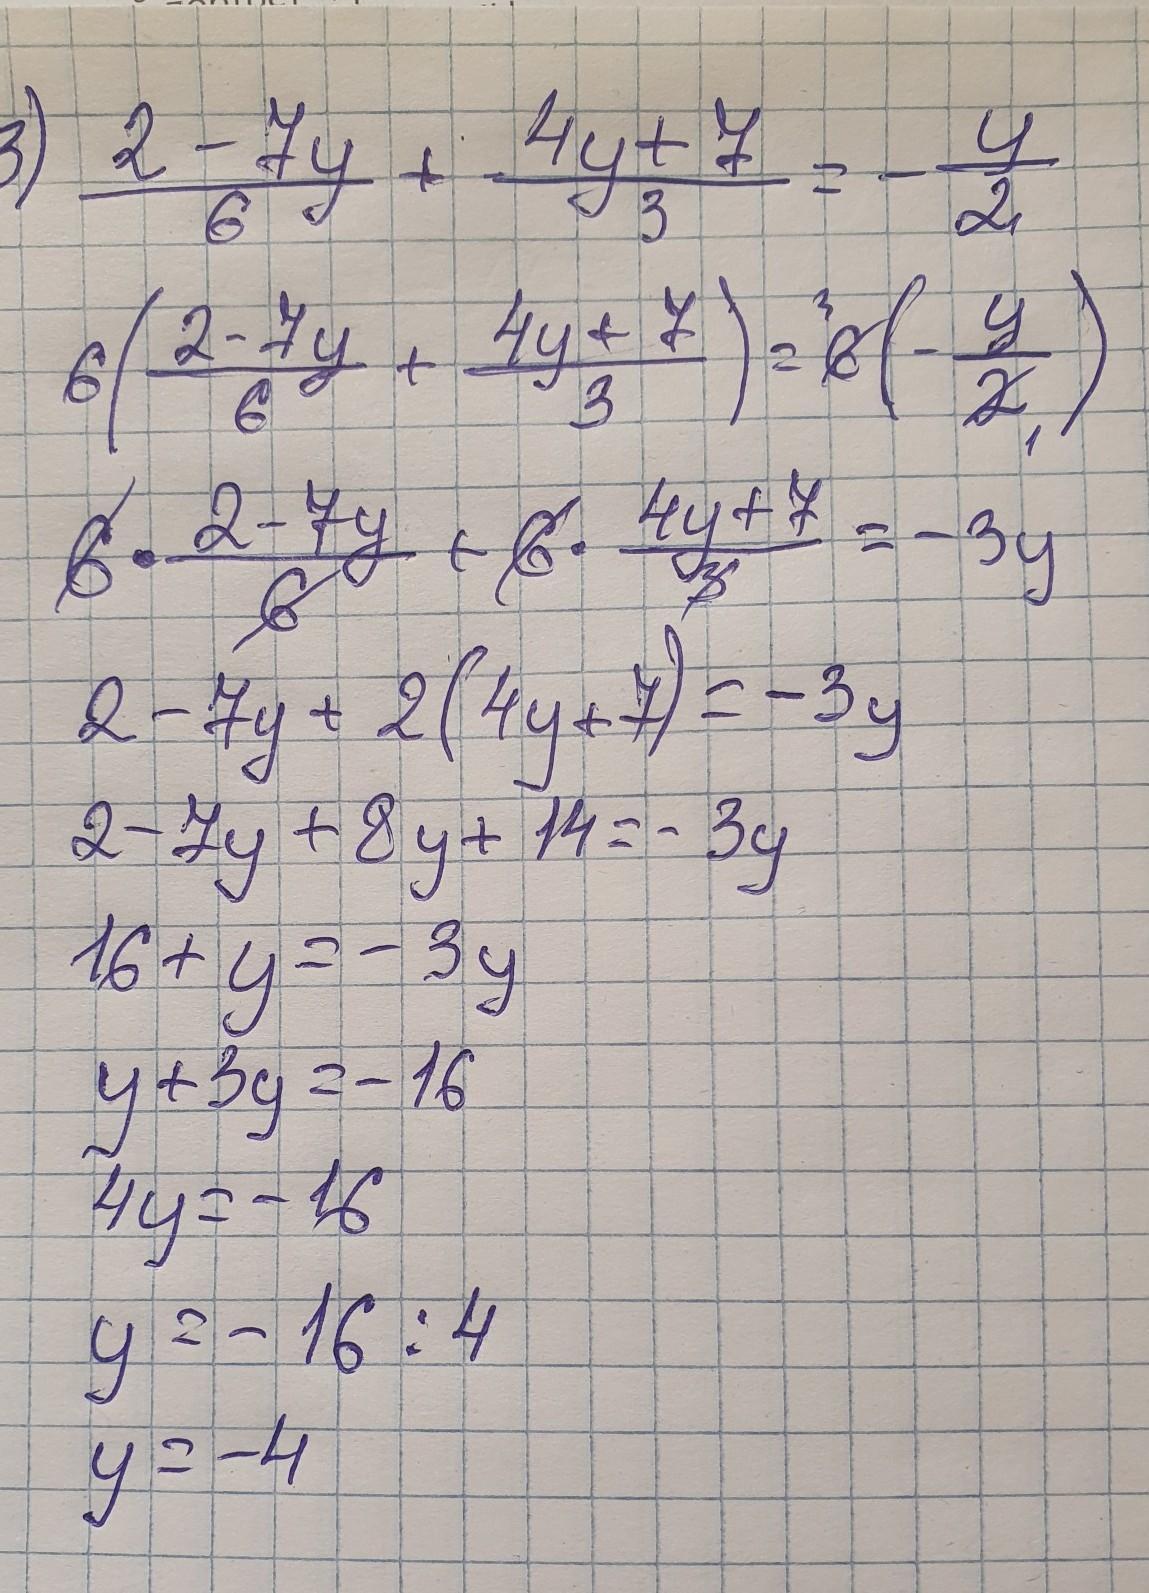 3) \frac{2-7y}{6} + \frac{4y+7}{3} = -\frac{y}{2}
6(\frac{2-7y}{6} + \frac{4y+7}{3}) = 6^3(-\frac{y}{2_1})
6 · \frac{2-7y}{6} + 6 · \frac{4y+7}{3} = -3y
2-7y+2(4y+7)=-3y
2-7y+8y+14=-3y
16+y=-3y
y+3y=-16
4y=-16
y=-16:4
y=-4